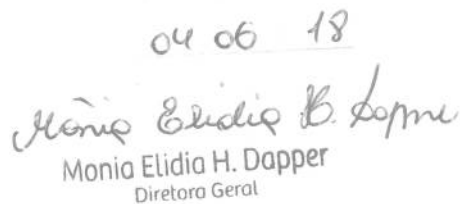 04 06 18
Mônia Elidia H. Dapper
Monia Elidia H. Dapper
Diretora Geral